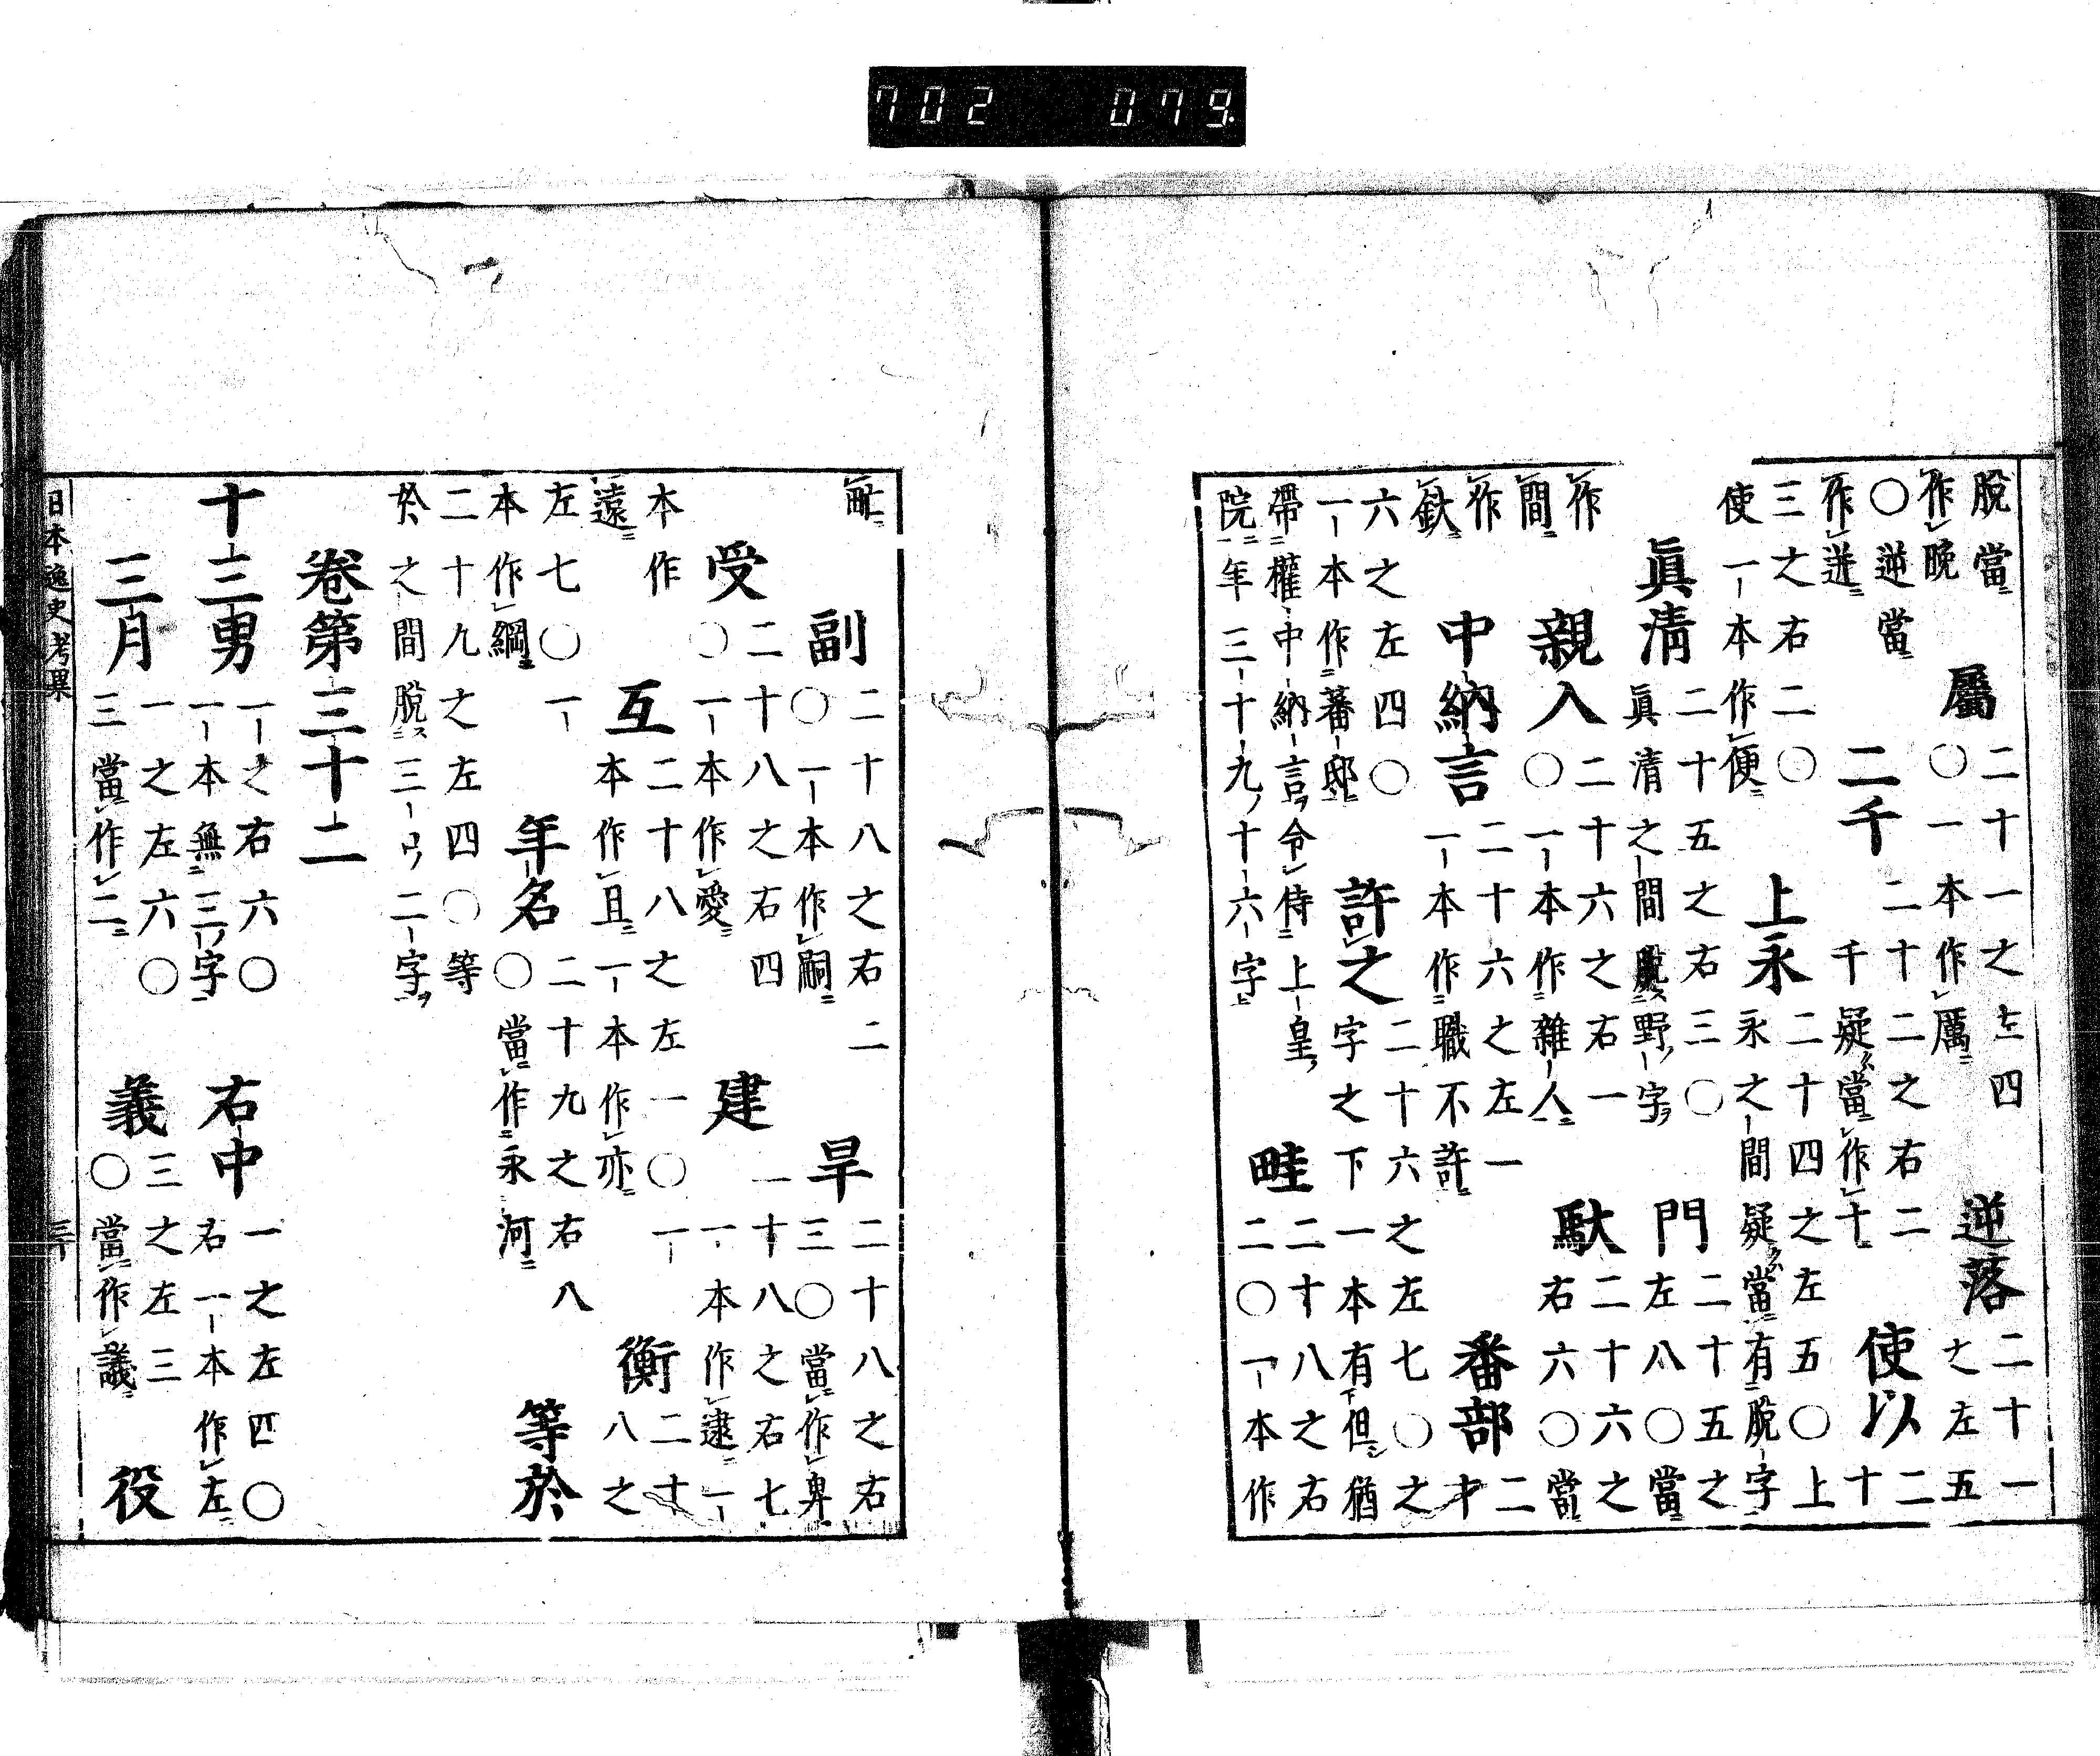 脫當作晚 屬 二十一之左四〇一本作厲 逆落 二十一之左五
〇逆當作迸 二千 二十二之右二千疑當作十 使以 二十
三之右二〇使一本作便 上永 二十四之左五〇上永之間疑當有脫字
眞清 二十五之右三〇眞清之間脫野字 門 二十五之左八〇當
作間 親入 二十六之右一〇一本作雜人 馱 二十六之右六〇當
作鈦 中納言 二十六之左一一本作職不許 番部 二十
六之左四〇一本作蕃邸 許之 二十六之左七〇之字之下一本有但猶
帶權中納言令侍上皇院年三十九十六字 畦 二十八之右二〇一本作
畝 副 二十八之右二〇一本作嗣 旱 二十八之右三〇當作卑
受 二十八之右四〇一本作愛 建 二十八之右七一本作逮一
本作遠 互 二十八之左一〇一本作且一本作亦 衡 二十八之
左七〇一本作綱 年名 二十九之右八〇當作永河 等於
二十九之左四〇等於之間脫三弖二字
卷第三十二
十三男 一之右六〇一本無三字 右中 一之左四〇右一本作左
三月 一之左六〇三當作二 義 三之左三〇當作議 役
日本逸史考異
三十
702 079